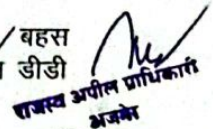 बहस
डीडी
राजस्व अपील प्राधिकारी
अजमेर